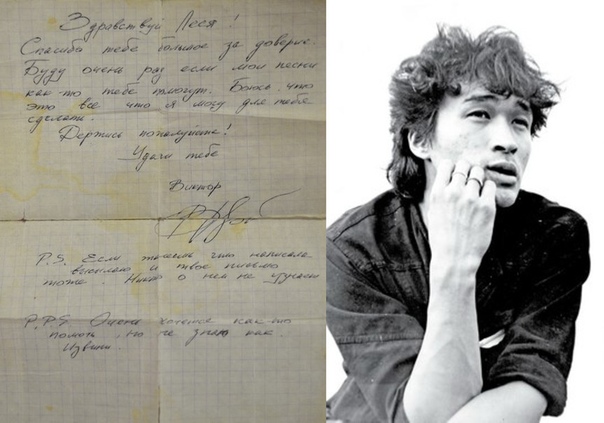 Здравствуй Леся!
Спасибо тебе большое за доверие.
Буду очень рад если мои песни
как-то тебе помогут. Боюсь что
это все что я могу для тебя
сделать.
Держись пожалуйста!
Удачи тебе
Виктор
P.S. Если
высылаю и твое письмо
тоже. Никто о нем не узнает
P.P.S. Очень хочется как-то
помочь, но не знаю как
Извини.